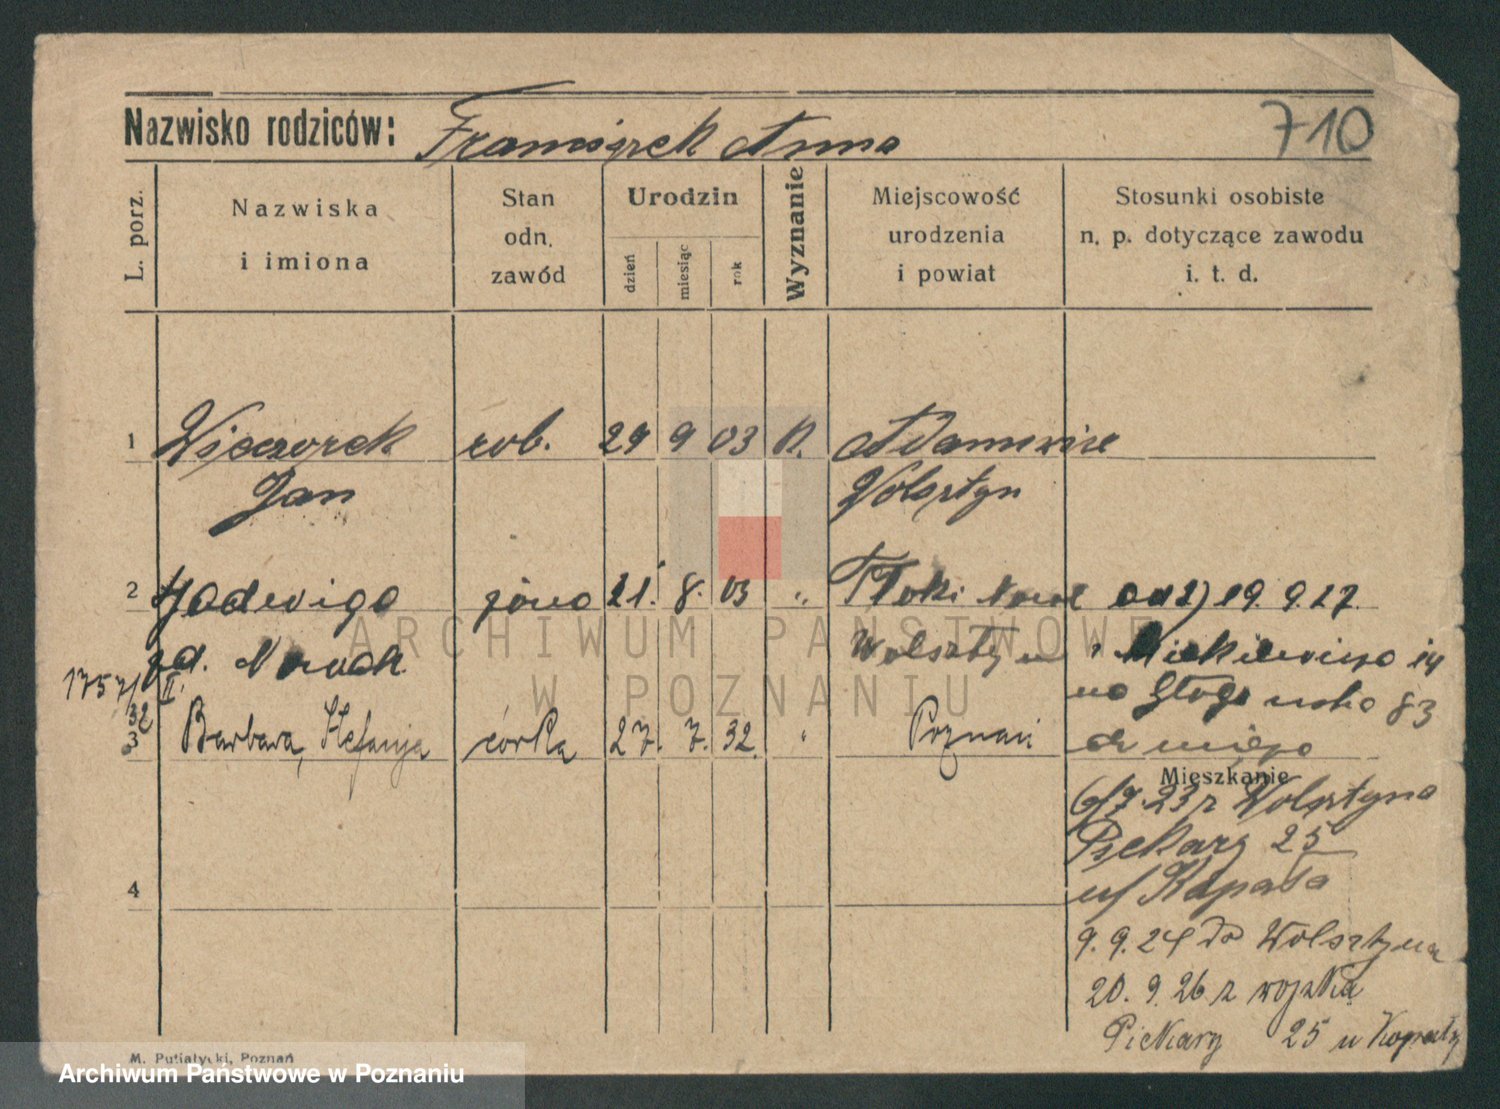 Nazwisko rodziców: Franciszek Anna
710
L. porz.
Nazwiska
i imiona
Stan
odn.
zawód
Urodzin
dzień
miesiąc
rok
Wyznanie
Miejscowość
urodzenia
i powiat
Stosunki osobiste
n. p. dotyczące zawodu
i. t. d.
1 Wieczorek rob. 29 9 03 K.
Jan Wolsztyn
2 Jadwiga żona 21. 8. 03 "
od 2) 19. 9. 27.
zd. Nowak Wolsztyn Mickiewicza 14
1757/II. 32
na Głogowska 83
3 Barbara, Stefanja córka 27. 7. 32. " Poznań
Mieszkanie
6/7. 23 z Wolsztyna
Piekary 25
u/ Kapała
4
9. 9. 24 do Wolsztyna
20. 9. 26 z wojska
Piekary 25 u
M. Putiatycki, Poznań
ARCHIWUM PAŃSTWOWE
W POZNANIU
Archiwum Państwowe w Poznaniu